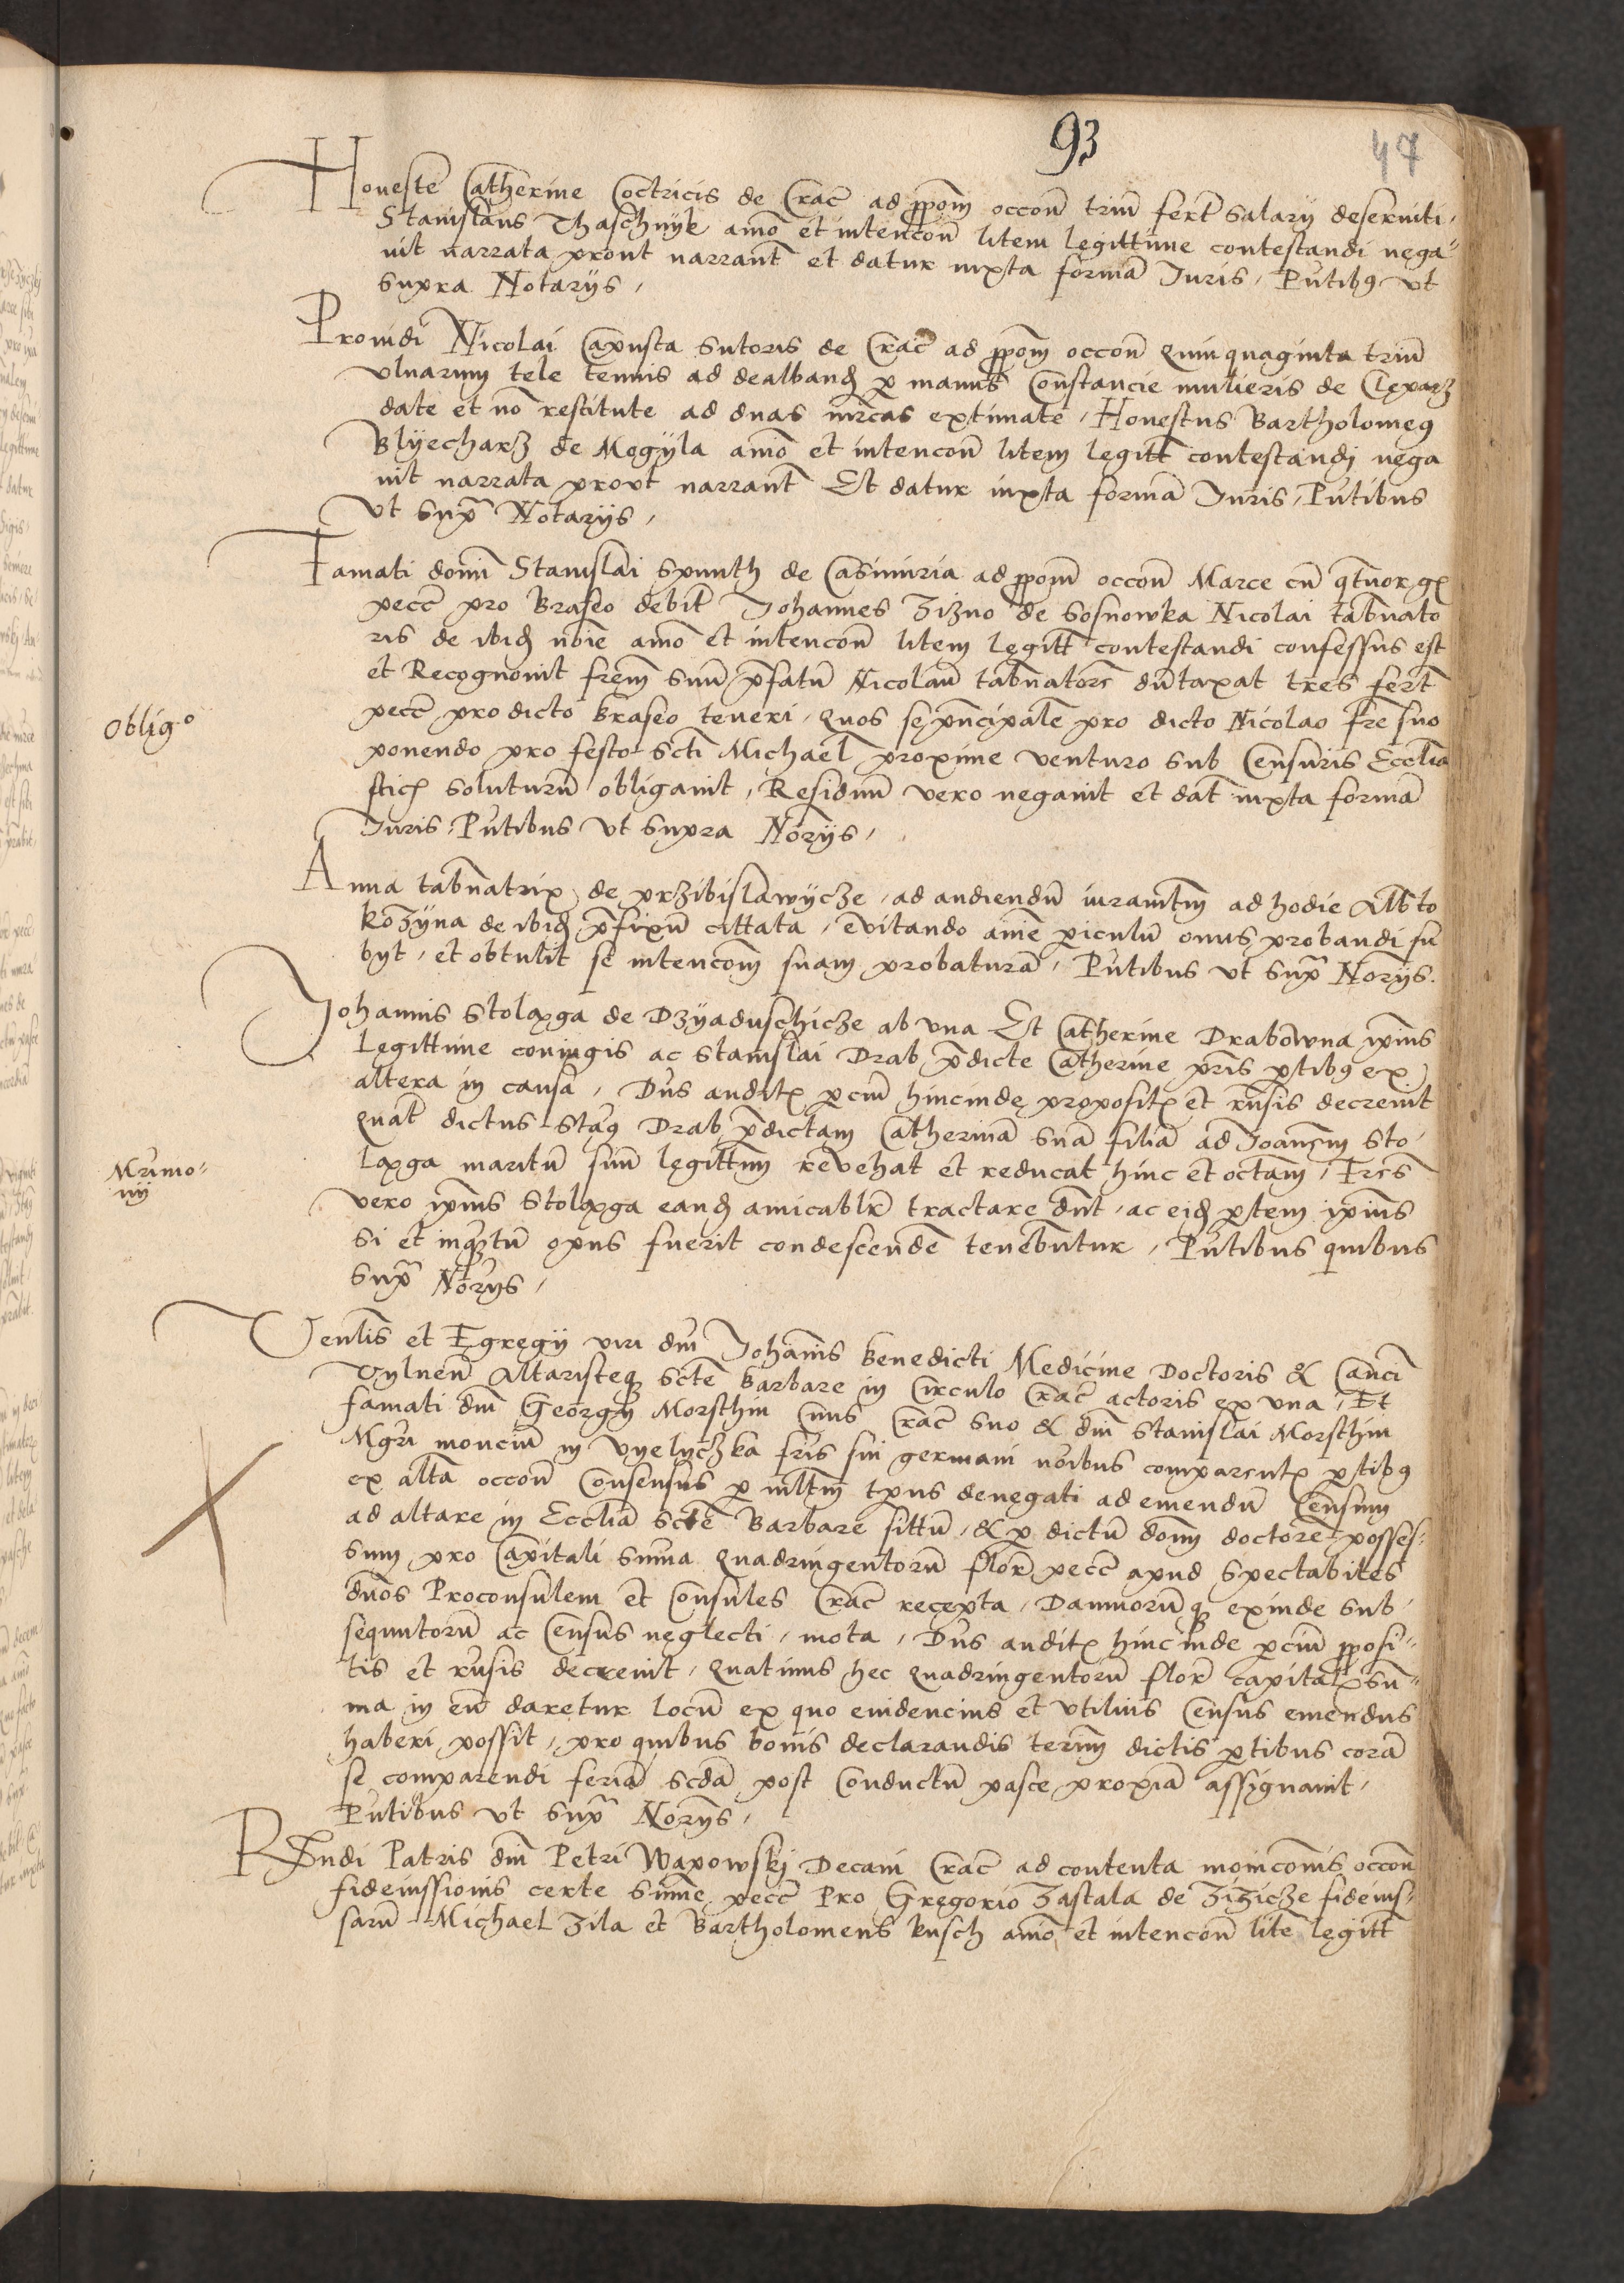 93
47
Honeste Catherine Coctricis de Crac̄ ad ꝓpōm occoūe triū fert̄ salarij deserviti,
Stanislaus Thaschnyk aīo et intencoūe litem legittime contestandi nega
uit narrata prout narrant̄ et datur iuxta formā Iuris, Pn̄tibꝯ vt
supra Notarijs,
Prouidi Nicolai Capusta sutoris de Crac̄ ad ꝓpōm occoūe quinquaginta triū
vlnarum tele tenuis ad dealband̄ ꝑ manus Constancie mulieris de Clepar͡z
date et nō restitute ad duas mr̄cas extimate, Honestus Bartholomeꝯ
Blyecharz de Mogyla aīo et intencoūe litem legitt̄ contestandj nega
uit narrata provt narrant̄ Et datur iuxta formā Iuris, Pn̄tibus
vt supꝛᷓ Notarijs,
Famati domī Stanislai Spunth de Casimiria ad ꝓpōm occoūe Marce cū qᷓtuor gꝝ
pecc̄ pro Braseo debit̄ Johannes Zizno de Sosnowka Nicolai tabn̄ato
ris de ibid̄ noīe aīo et intencoūe litem legitt̄ contestandi confessus est
et Recognouit frēm suū p̄fatū Nicolaū tabn̄atorē dūtaxat tres fert̄
pecc̄ pro dicto braseo teneri, quos se pn̄cipale pro dicto Nicolao fr̄e suo
Oblig.o
ponendo pro festo Scti Michael̄ proxime venturo sub Censuris Eccl̄ia
sticꝝ soluturū obligauit, Residuū vero negauit et dat̄ iuxta formā
Iuris, Pn̄tibus vt supra Nōrijs,
Anna tabn̄atrix de przibislawycze, ad audiendū iuramt̄m ad hodie Alb̄to
kozyna de ibid̄ p̄fixū cittata, evitando aīe ꝑiculū onus probandi su
byt, et obtulit se intencōm suam probaturā, Pn̄tibus vt supꝛᷓ Nōrijs.
Johannis Stolapga de Dzyaduschicze ab vna Et Catherine Drabowna ip̄ius
Legittime coniugis ac Stanislai Drab p̄dicte Catherine pr̄is ꝑtibꝯ ex
altera in causa, Dn̄s auditꝝ ꝑciū hincinde propositꝝ et vīsis decreuit
quat̄ dictus Sta9 Drab p̄dictam Catherinā suā filiā ad Joannem Sto
Mr̄imo
nij
lapga maritū suū legittm̄ revehat et reducat hinc et octam̄,
vero ip̄ius Stolapga eand̄ amicabl̄r tractare dn̄t, ac eid̄ ꝑtem ip̄ius
si et inqᷓtū opus fuerit condescende tenebūtur, Pn̄tibus quibus
supꝛᷓ Nōrijs,
Venl̄is et Egregij viri dn̄i Johānis Benedicti Medicine Doctoris & Can̄ci
Vylneñ Altaristeqꝫ Scte Barbare in Circulo Crac̄ actoris ex vna, Et
famati dn̄i Georgij Morsthin Ciuis Crac̄ suo & dn̄i Stanislai Morsthin
Mgr̄i monciū in Vyelyczka fr̄is sui germani noībus comparentꝝ ꝑtibꝯ
ex alt̄a occoūe Consensus ꝑ mltm̄ tp̄us denegati ad emendū Censum
ad altare in Eccl̄ia Scte Barbare sittū, & ꝑ dictū domī doctorē posses
sum pro Capitali suma quadringentorū flor̄ pecc̄ apud Spectabiles
dn̄os Proconsulem et Consules Crac̄ recepta, Damnorūqꝫ exinde sub
sequutorū ac Census neglecti, mota, Dn̄s auditꝝ hincinde ꝑciū ꝓposi
tis et vīsis decreuit, quatinus hec quadringentorū flor̄ capitalꝝ sū
ma in eū daretur locū ex quo euidencius et vtilius Census emendus
haberi possit, pro quibus bonis declarandis term̄ dictis ꝑtibus corā
se comparendi feriā scdā post Conductū pasce proxiā assignauit,
Pn̄tibus vt supꝛᷓ Nōrijs,
Rn̄di Patris dn̄i Petri Wapowskj Decani Crac̄ ad contenta monicōnis occoūe
fideiussionis certe sum̄e pecc̄ Pro Gregorio Zastala de Zizicze fideius
sarū Michael Zila et Bartholomeus kusch aīo et intencoūe lite legitt̄